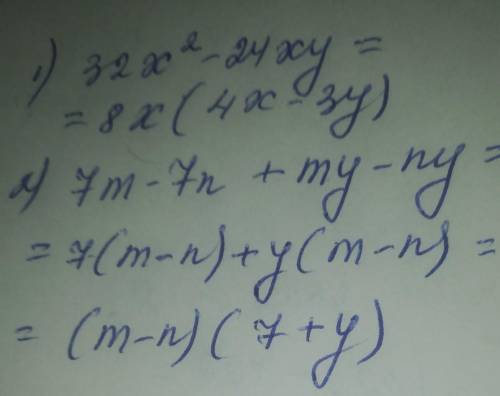 1) 32x² - 24xy =
= 8x(4x - 3y)
2) 7m - 7n + my - ny =
= 7(m - n) + y(m - n) =
= (m - n)(7 + y)